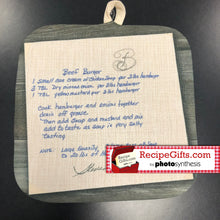 B
Beef Burger
1 small can Cream of Chicken Soup per 2 lbs hamburger
2 TBL Dry minced onion per 2 lbs hamburger
1 TBL yellow mustard per 2 lbs hamburger
Cook hamburger and onions together
drain off grease
Then add soup and mustard and mix
add to taste as soup is very salty
tasting
NOTE: Large
to 20 lbs of
RecipeGifts.com
by photosynthesis